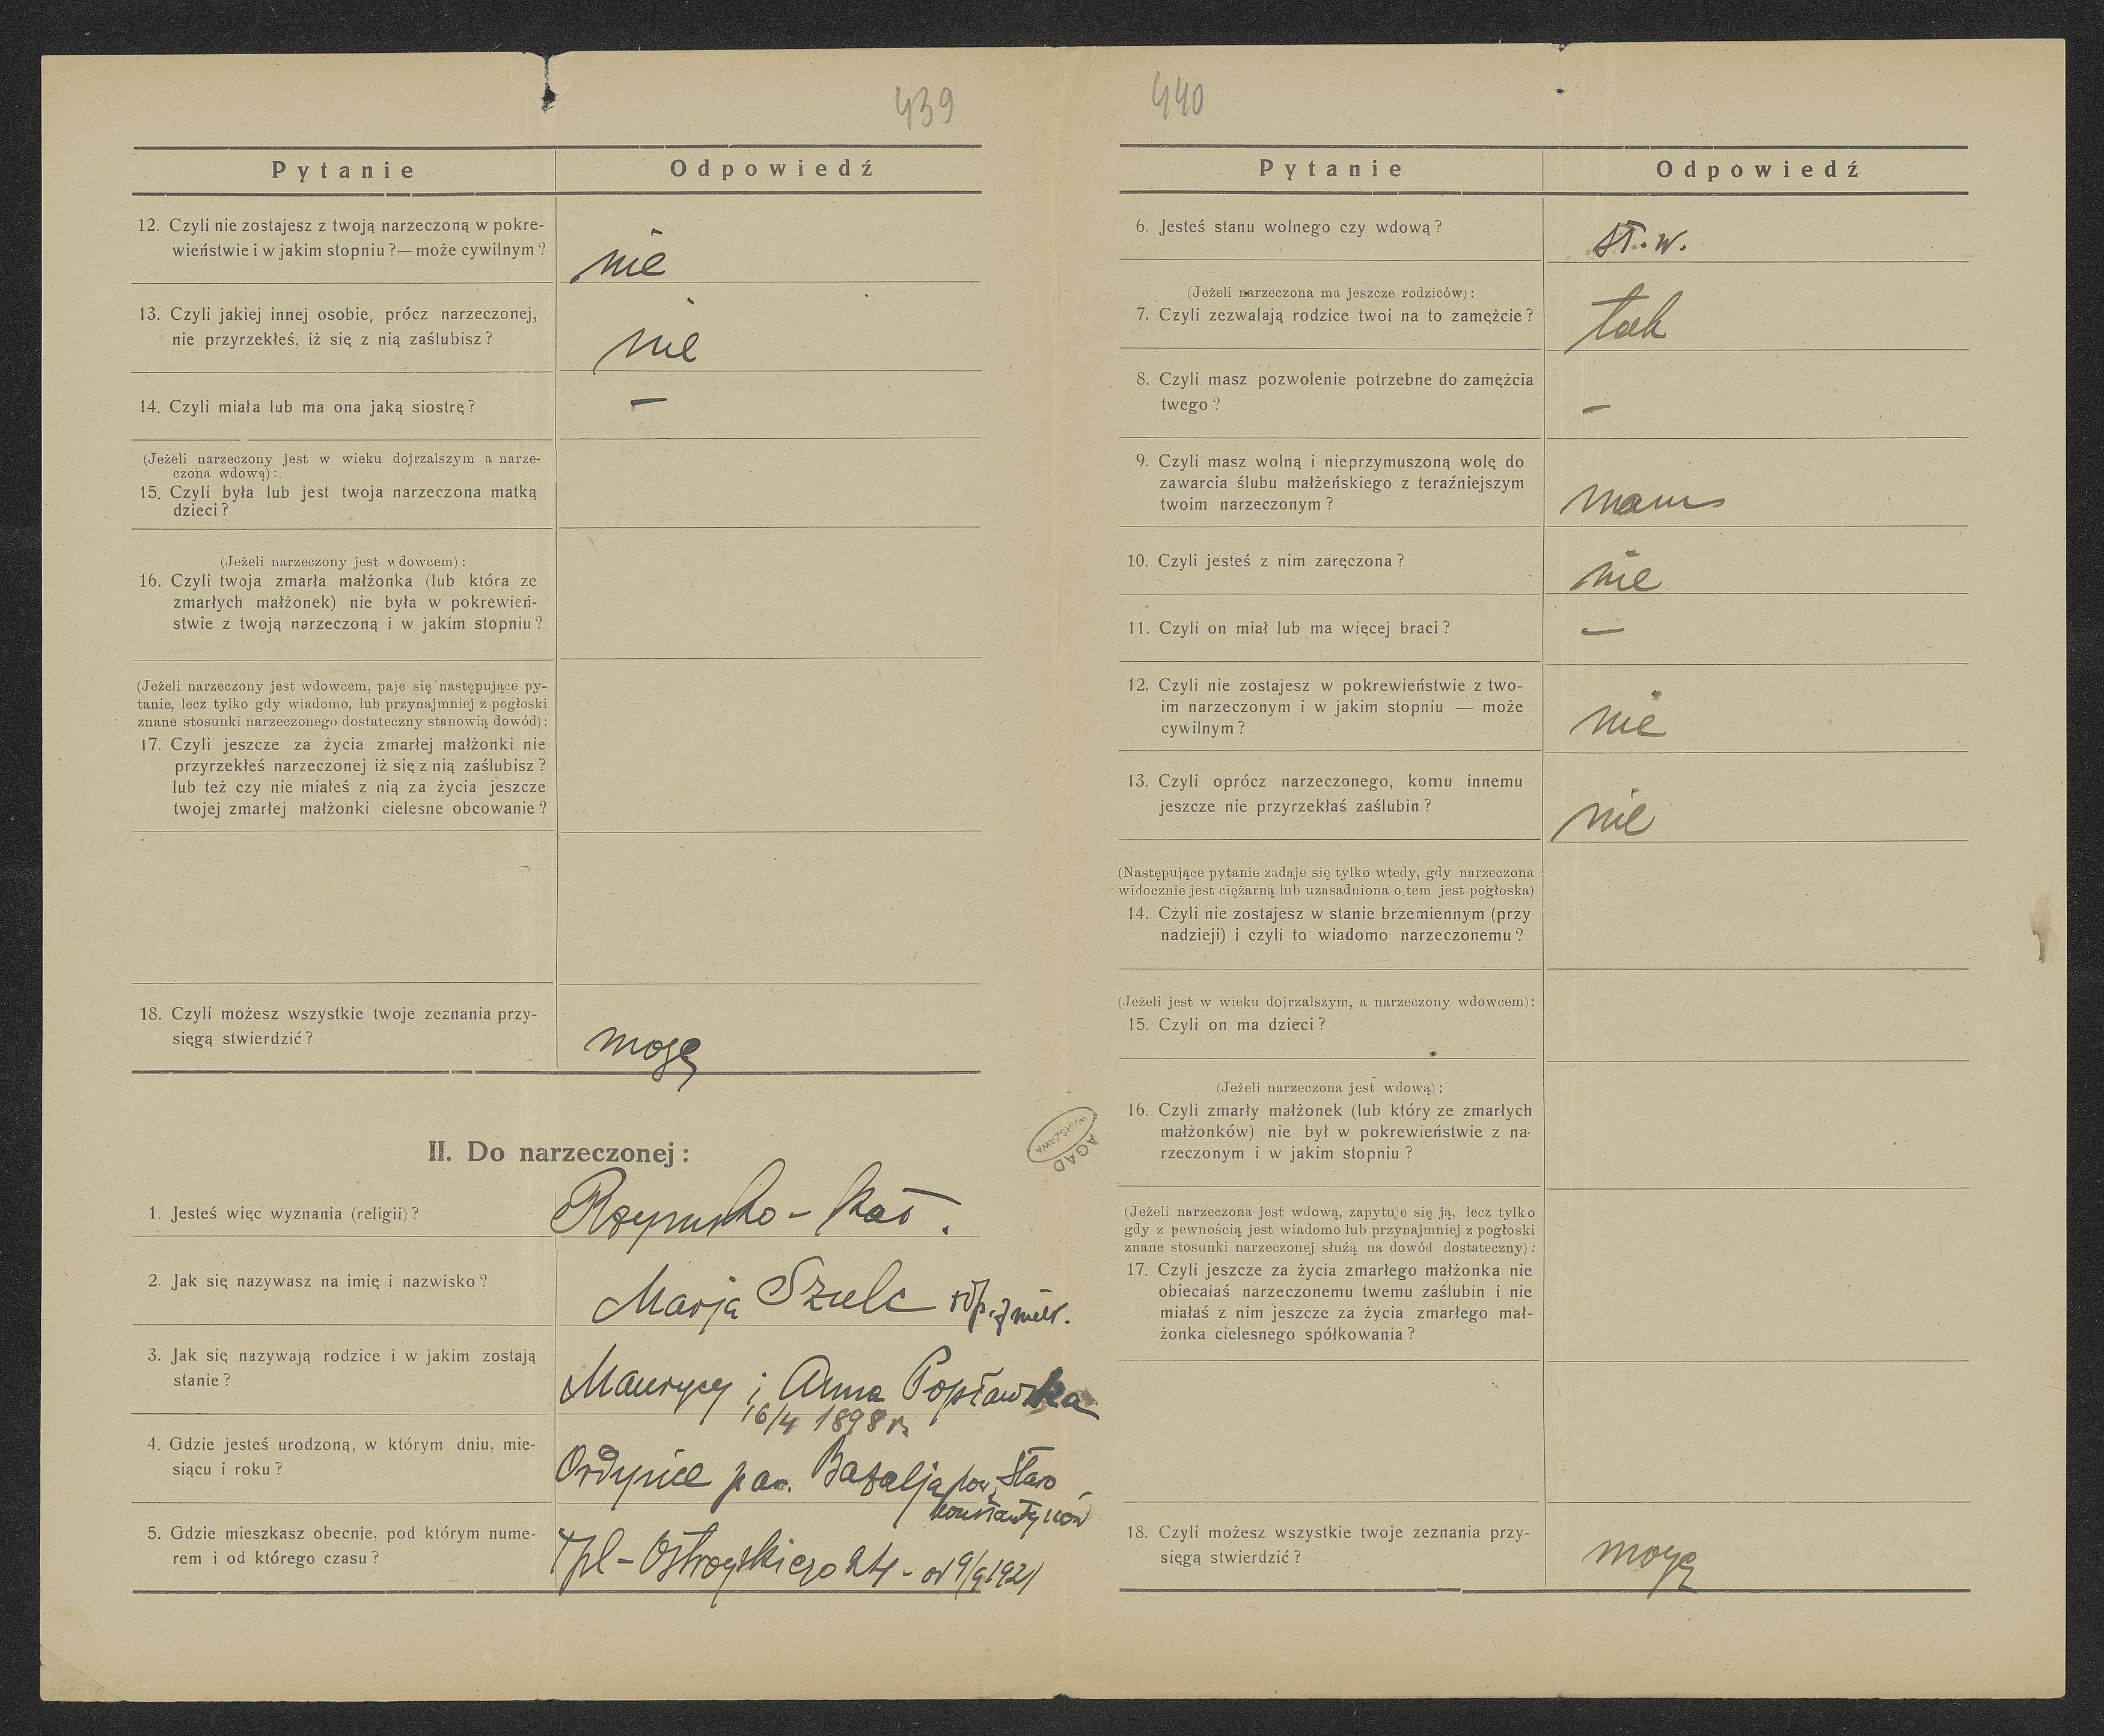 439
Pytanie Odpowiedź
12. Czyli nie zostajesz z twoją narzeczoną w pokre-
wieństwie i w jakim stopniu ? — może cywilnym ?
nie
13. Czyli jakiej innej osobie, prócz narzeczonej,
nie przyrzekłeś, iż się z nią zaślubisz ?
nie
14. Czyli miała lub ma ona jaką siostrę ?
—
(Jeżeli narzeczony jest w wieku dojrzalszym a narze-
czona wdową) :
15. Czyli była lub jest twoja narzeczona matką
dzieci ?
(Jeżeli narzeczony jest wdowcem) :
16. Czyli twoja zmarła małżonka (lub która ze
zmarłych małżonek) nie była w pokrewień-
stwie z twoją narzeczoną i w jakim stopniu ?
(Jeżeli narzeczony jest wdowcem, paje się następujące py-
tanie, lecz tylko gdy wiadomo, lub przynajmniej z pogłoski
znane stosunki narzeczonego dostateczny stanowią dowód) :
17. Czyli jeszcze za życia zmarłej małżonki nie
przyrzekłeś narzeczonej iż się z nią zaślubisz ?
lub też czy nie miałeś z nią za życia jeszcze
twojej zmarłej małżonki cielesne obcowanie ?
18. Czyli możesz wszystkie twoje zeznania przy-
sięgą stwierdzić ?
mogę
II. Do narzeczonej :
1. Jesteś więc wyznania (religii) ?
Rzymsko - kat.
2. Jak się nazywasz na imię i nazwisko ?
Marja Szulc
3. Jak się nazywają rodzice i w jakim zostają
stanie ?
Maurycy i Anna Popławska
16/4 1898 r.
4. Gdzie jesteś urodzoną, w którym dniu, mie-
siącu i roku ?
Ordynce par. Bazalja pow. Staro
konstantynów
5. Gdzie mieszkasz obecnie, pod którym nume-
rem i od którego czasu ?
Tpl - Ostrogskiego 24 - od 9/9 1921
AGAD
WARSZAWA
440
Pytanie Odpowiedź
6. Jesteś stanu wolnego czy wdową ?
st. w.
(Jeżeli narzeczona ma jeszcze rodziców) :
7. Czyli zezwalają rodzice twoi na to zamężcie ?
tak
8. Czyli masz pozwolenie potrzebne do zamężcia
twego ?
—
9. Czyli masz wolną i nieprzymuszoną wolę do
zawarcia ślubu małżeńskiego z teraźniejszym
twoim narzeczonym ?
mam
10. Czyli jesteś z nim zaręczona ?
nie
11. Czyli on miał lub ma więcej braci ?
—
12. Czyli nie zostajesz w pokrewieństwie z two-
im narzeczonym i w jakim stopniu — może
cywilnym ?
nie
13. Czyli oprócz narzeczonego, komu innemu
jeszcze nie przyrzekłaś zaślubin ?
nie
(Następujące pytanie zadaje się tylko wtedy, gdy narzeczona
widocznie jest ciężarną lub uzasadniona o tem jest pogłoska)
14. Czyli nie zostajesz w stanie brzemiennym (przy
nadzieji) i czyli to wiadomo narzeczonemu ?
(Jeżeli jest w wieku dojrzalszym, a narzeczony wdowcem) :
15. Czyli on ma dzieci ?
(Jeżeli narzeczona jest wdową) :
16. Czyli zmarły małżonek (lub który ze zmarłych
małżonków) nie był w pokrewieństwie z na-
rzeczonym i w jakim stopniu ?
(Jeżeli narzeczona jest wdową, zapytuje się ją, lecz tylko
gdy z pewnością jest wiadomo lub przynajmniej z pogłoski
znane stosunki narzeczonej służą na dowód dostateczny) :
17. Czyli jeszcze za życia zmarłego małżonka nie
obiecałaś narzeczonemu twemu zaślubin i nie
miałaś z nim jeszcze za życia zmarłego mał-
żonka cielesnego spółkowania ?
18. Czyli możesz wszystkie twoje zeznania przy-
sięgą stwierdzić ?
mogę